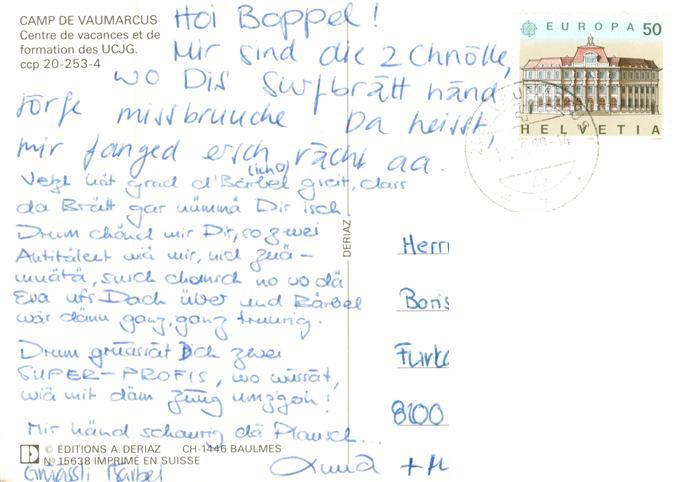 CAMP DE VAUMARCUS
Centre de vacances et de
formation des UCJG.
ccp 20-253-4
Hoi Boppel!
Mir sind die 2 Chnölle,
wo Dis Surfbrätt händ
törfe missbruuche Da heisst,
mir fanged ersch rächt aa.
(icho)
Vezt hät grad d'Bärbel greit, dass
da Brätt gar nümmä Dir isch!
Drum chönd mir Dir, so zwei
Antitalent wiä mir, nid zuä-
muätä, susch chonsch no vo dä
Eva ufs Dach über und Bärbel
wär dänn ganz, ganz truurig.
Drum grüässät Dich zwei
SUPER-PROFIS, wo wüssät,
wiä mit däm Züüg umzgoh!
Mir händ schaurig dä Plausch...
Grüässli Bärbel
+
© ÉDITIONS A. DERIAZ CH-1446 BAULMES
N° 15638 IMPRIMÉ EN SUISSE
DERIAZ
EUROPA 50
HELVETIA
Herrn
Boris
8100